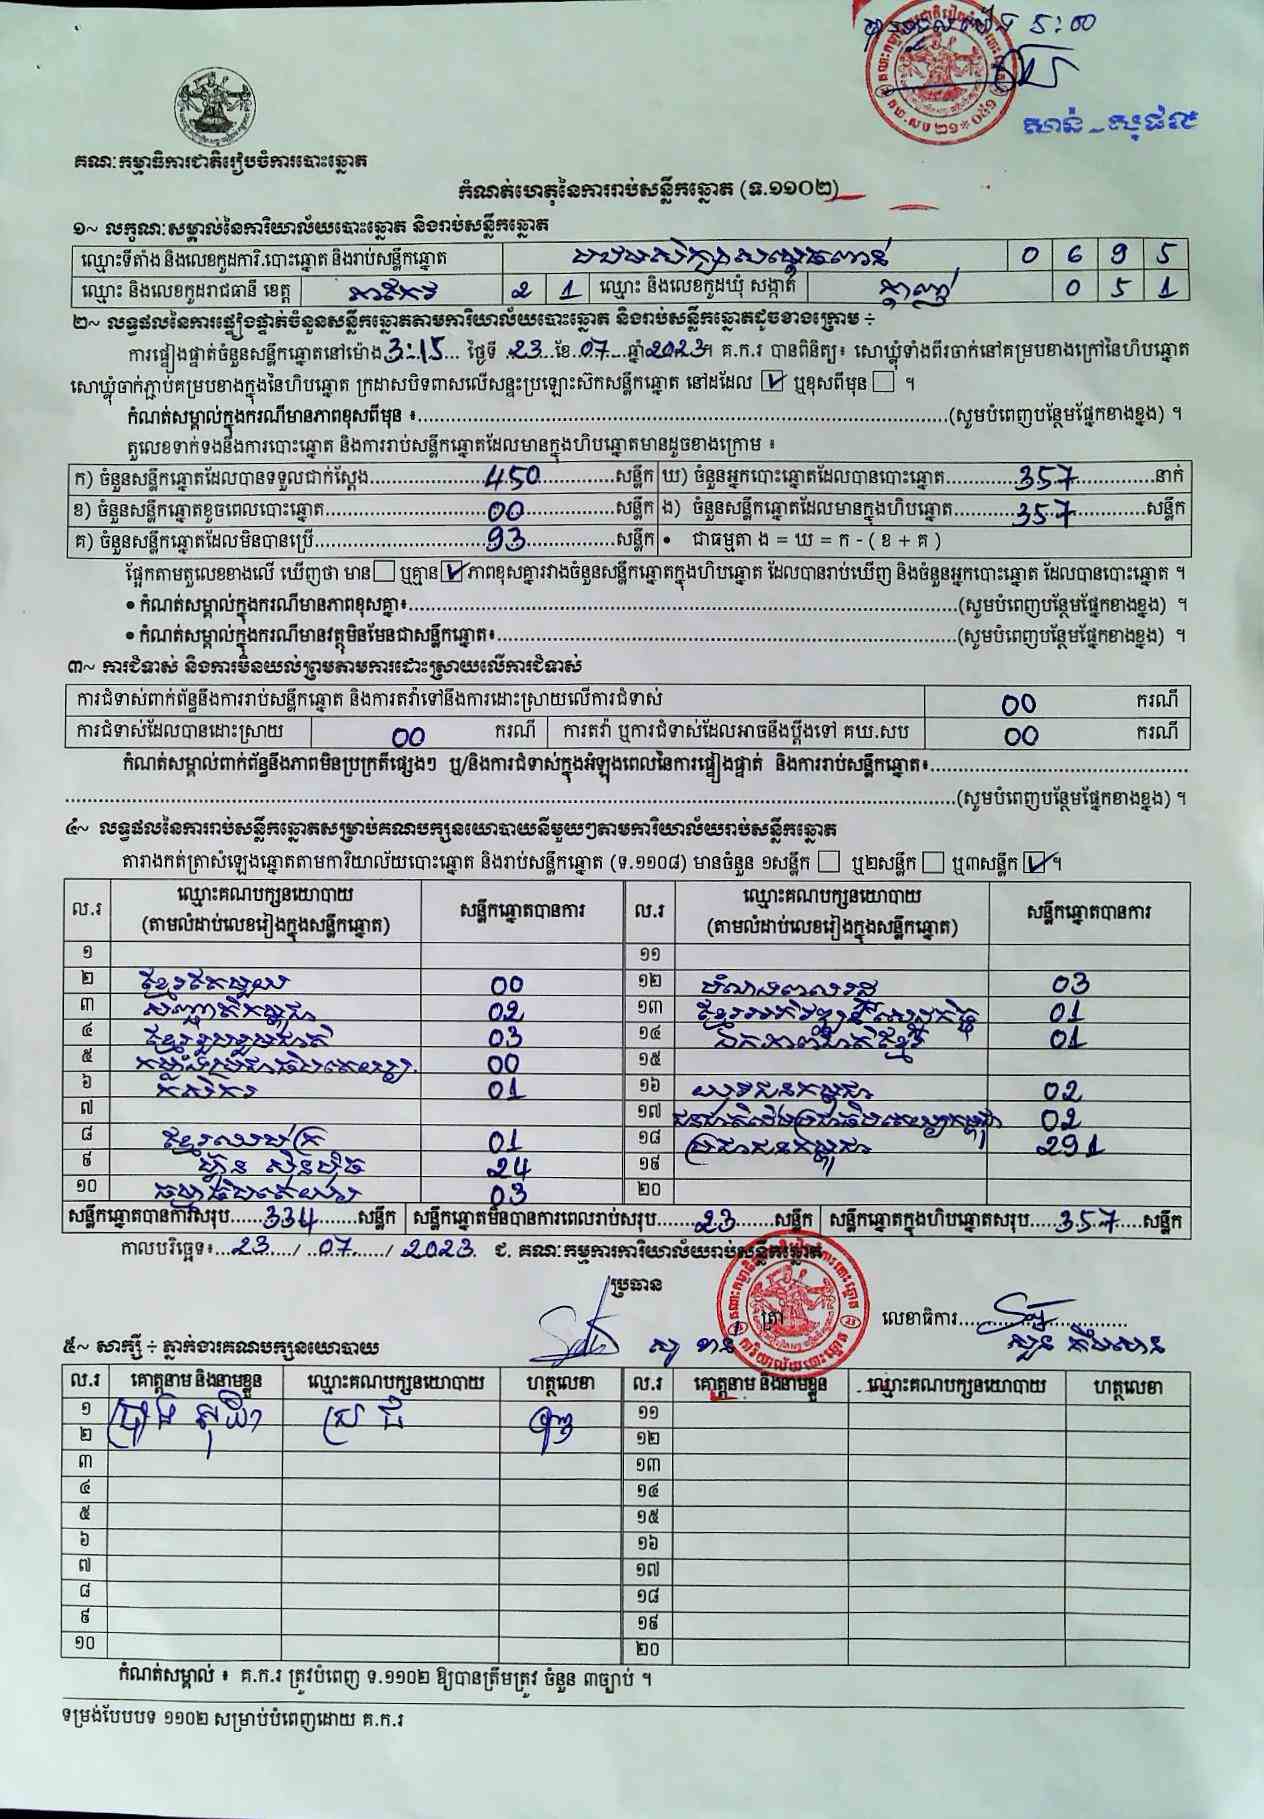 ៥:០០
សាន់ សុផល
គណៈកម្មាធិការជាតិរៀបចំការបោះឆ្នោត
កំណត់ហេតុនៃការរាប់សន្លឹកឆ្នោត (ទ.១១០២)
១~ លក្ខណៈសម្គាល់នៃការិយាល័យបោះឆ្នោត និងរាប់សន្លឹកឆ្នោត
ឈ្មោះទីតាំង និងលេខកូដការិ.បោះឆ្នោត និងរាប់សន្លឹកឆ្នោត 0 6 9 5
ឈ្មោះ និងលេខកូដរាជធានី ខេត្ត តាកែវ 2 1 ឈ្មោះ និងលេខកូដឃុំ សង្កាត់ 0 5 1
២~ លទ្ធផលនៃការផ្ទៀងផ្ទាត់ចំនួនសន្លឹកឆ្នោតតាមការិយាល័យបោះឆ្នោត និងរាប់សន្លឹកឆ្នោតដូចខាងក្រោម ÷
ការផ្ទៀងផ្ទាត់ចំនួនសន្លឹកឆ្នោតនៅម៉ោង 3:15 ថ្ងៃទី 23 ខែ 07 ឆ្នាំ 2023។ គ.ក.រ បានពិនិត្យ៖ សោឃ្លុំទាំងពីរចាក់នៅគម្របខាងក្រៅនៃហិបឆ្នោត
សោឃ្លុំចាក់ភ្ជាប់គម្របខាងក្នុងនៃហិបឆ្នោត ក្រដាសបិទពាសលើសន្ទះប្រឡោះស៊កសន្លឹកឆ្នោត នៅដដែល ☑ ឬខុសពីមុន ☐ ។
កំណត់សម្គាល់ក្នុងករណីមានភាពខុសពីមុន ៖ (សូមបំពេញបន្ថែមផ្នែកខាងខ្នង) ។
តួលេខទាក់ទងនឹងការបោះឆ្នោត និងការរាប់សន្លឹកឆ្នោតដែលមានក្នុងហិបឆ្នោតមានដូចខាងក្រោម ៖
ក) ចំនួនសន្លឹកឆ្នោតដែលបានទទួលជាក់ស្តែង 450 សន្លឹក ឃ) ចំនួនអ្នកបោះឆ្នោតដែលបានបោះឆ្នោត 357 នាក់
ខ) ចំនួនសន្លឹកឆ្នោតខូចពេលបោះឆ្នោត 00 សន្លឹក ង) ចំនួនសន្លឹកឆ្នោតដែលមានក្នុងហិបឆ្នោត 357 សន្លឹក
គ) ចំនួនសន្លឹកឆ្នោតដែលមិនបានប្រើ 93 សន្លឹក • ជាធម្មតា ង = ឃ = ក - ( ខ + គ )
ផ្អែកតាមតួលេខខាងលើ ឃើញថា មាន ☐ ឬគ្មាន ☑ ភាពខុសគ្នារវាងចំនួនសន្លឹកឆ្នោតក្នុងហិបឆ្នោត ដែលបានរាប់ឃើញ និងចំនួនអ្នកបោះឆ្នោត ដែលបានបោះឆ្នោត ។
• កំណត់សម្គាល់ក្នុងករណីមានភាពខុសគ្នា៖ (សូមបំពេញបន្ថែមផ្នែកខាងខ្នង) ។
• កំណត់សម្គាល់ក្នុងករណីមានវត្ថុមិនមែនជាសន្លឹកឆ្នោត៖ (សូមបំពេញបន្ថែមផ្នែកខាងខ្នង) ។
៣~ ការជំទាស់ និងការមិនយល់ព្រមតាមការដោះស្រាយលើការជំទាស់
ការជំទាស់ពាក់ព័ន្ធនឹងការរាប់សន្លឹកឆ្នោត និងការតវ៉ាទៅនឹងការដោះស្រាយលើការជំទាស់ 00 ករណី
ការជំទាស់ដែលបានដោះស្រាយ 00 ករណី ការតវ៉ា ឬការជំទាស់ដែលអាចនឹងប្តឹងទៅ គឃ.សប 00 ករណី
កំណត់សម្គាល់ពាក់ព័ន្ធនឹងភាពមិនប្រក្រតីផ្សេងៗ ឬ/និងការជំទាស់ក្នុងអំឡុងពេលនៃការផ្ទៀងផ្ទាត់ និងការរាប់សន្លឹកឆ្នោត៖
(សូមបំពេញបន្ថែមផ្នែកខាងខ្នង) ។
៤~ លទ្ធផលនៃការរាប់សន្លឹកឆ្នោតសម្រាប់គណបក្សនយោបាយនីមួយៗតាមការិយាល័យរាប់សន្លឹកឆ្នោត
តារាងកត់ត្រាសំឡេងឆ្នោតតាមការិយាល័យបោះឆ្នោត និងរាប់សន្លឹកឆ្នោត (ទ.១១០៨) មានចំនួន ១សន្លឹក ☐ ឬ២សន្លឹក ☐ ឬ៣សន្លឹក ☑ ។
ល.រ ឈ្មោះគណបក្សនយោបាយ (តាមលំដាប់លេខរៀងក្នុងសន្លឹកឆ្នោត) សន្លឹកឆ្នោតបានការ ល.រ ឈ្មោះគណបក្សនយោបាយ (តាមលំដាប់លេខរៀងក្នុងសន្លឹកឆ្នោត) សន្លឹកឆ្នោតបានការ
១ ១១
២ ខ្មែរតែមួយ 00 ១២ 03
៣ សញ្ជាតិកម្ពុជា 02 ១៣ ខ្មែរអភិវឌ្ឍន៍សេដ្ឋកិច្ច 01
៤ ខ្មែររួបរួមជាតិ 03 ១៤ ឯកភាពជាតិខ្មែរ 01
៥ កម្លាំងប្រជាធិបតេយ្យ 00 ១៥
៦ កសិករ 01 ១៦ យុវជនកម្ពុជា 02
៧ ១៧ ជនជាតិដើមប្រជាធិបតេយ្យកម្ពុជា 02
៨ ខ្មែរឈប់ក្រ 01 ១៨ ប្រជាជនកម្ពុជា 291
៩ ហ្វ៊ុនស៊ិនប៉ិច 24 ១៩
១០ 03 ២០
សន្លឹកឆ្នោតបានការសរុប 334 សន្លឹក សន្លឹកឆ្នោតមិនបានការពេលរាប់សរុប 23 សន្លឹក សន្លឹកឆ្នោតក្នុងហិបឆ្នោតសរុប 357 សន្លឹក
កាលបរិច្ឆេទ៖ 23 / 07 / 2023 ជ. គណៈកម្មការការិយាល័យរាប់សន្លឹកឆ្នោត
ប្រធាន
ត្រា លេខាធិការ
៥~ សាក្សី ÷ ភ្នាក់ងារគណបក្សនយោបាយ
ល.រ គោត្តនាម និងនាមខ្លួន ឈ្មោះគណបក្សនយោបាយ ហត្ថលេខា ល.រ គោត្តនាម និងនាមខ្លួន ឈ្មោះគណបក្សនយោបាយ ហត្ថលេខា
១ ១១
២ ១២
៣ ១៣
៤ ១៤
៥ ១៥
៦ ១៦
៧ ១៧
៨ ១៨
៩ ១៩
១០ ២០
កំណត់សម្គាល់ ៖ គ.ក.រ ត្រូវបំពេញ ទ.១១០២ ឱ្យបានត្រឹមត្រូវ ចំនួន ៣ច្បាប់ ។
ទម្រង់បែបបទ ១១០២ សម្រាប់បំពេញដោយ គ.ក.រ